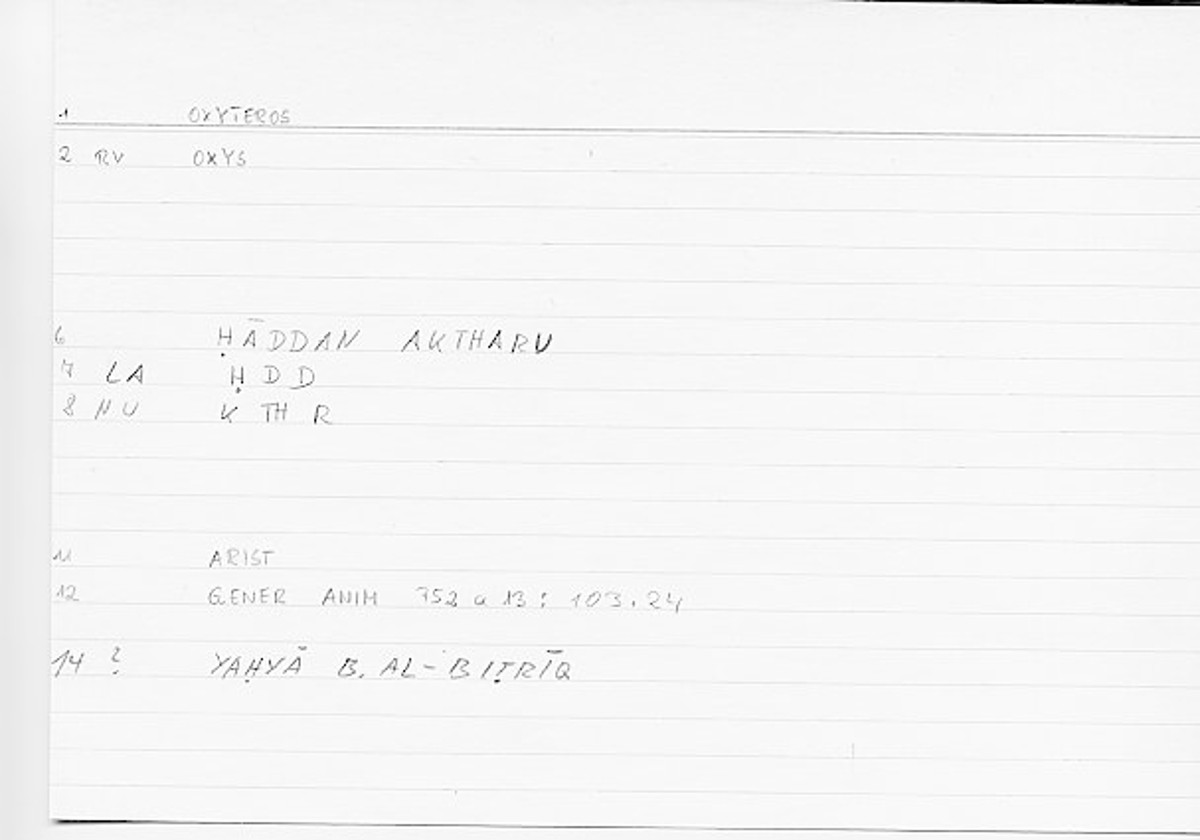 1 OXYTEROS
2 RV OXYS
6 ḤĀDDAN AKTHARU
7 LA Ḥ D D
8 NU K TH R
11 ARIST
12 GENER ANIM 752 a 13 : 103.24
14 ? YAḤYĀ B. AL-BIṬRĪQ